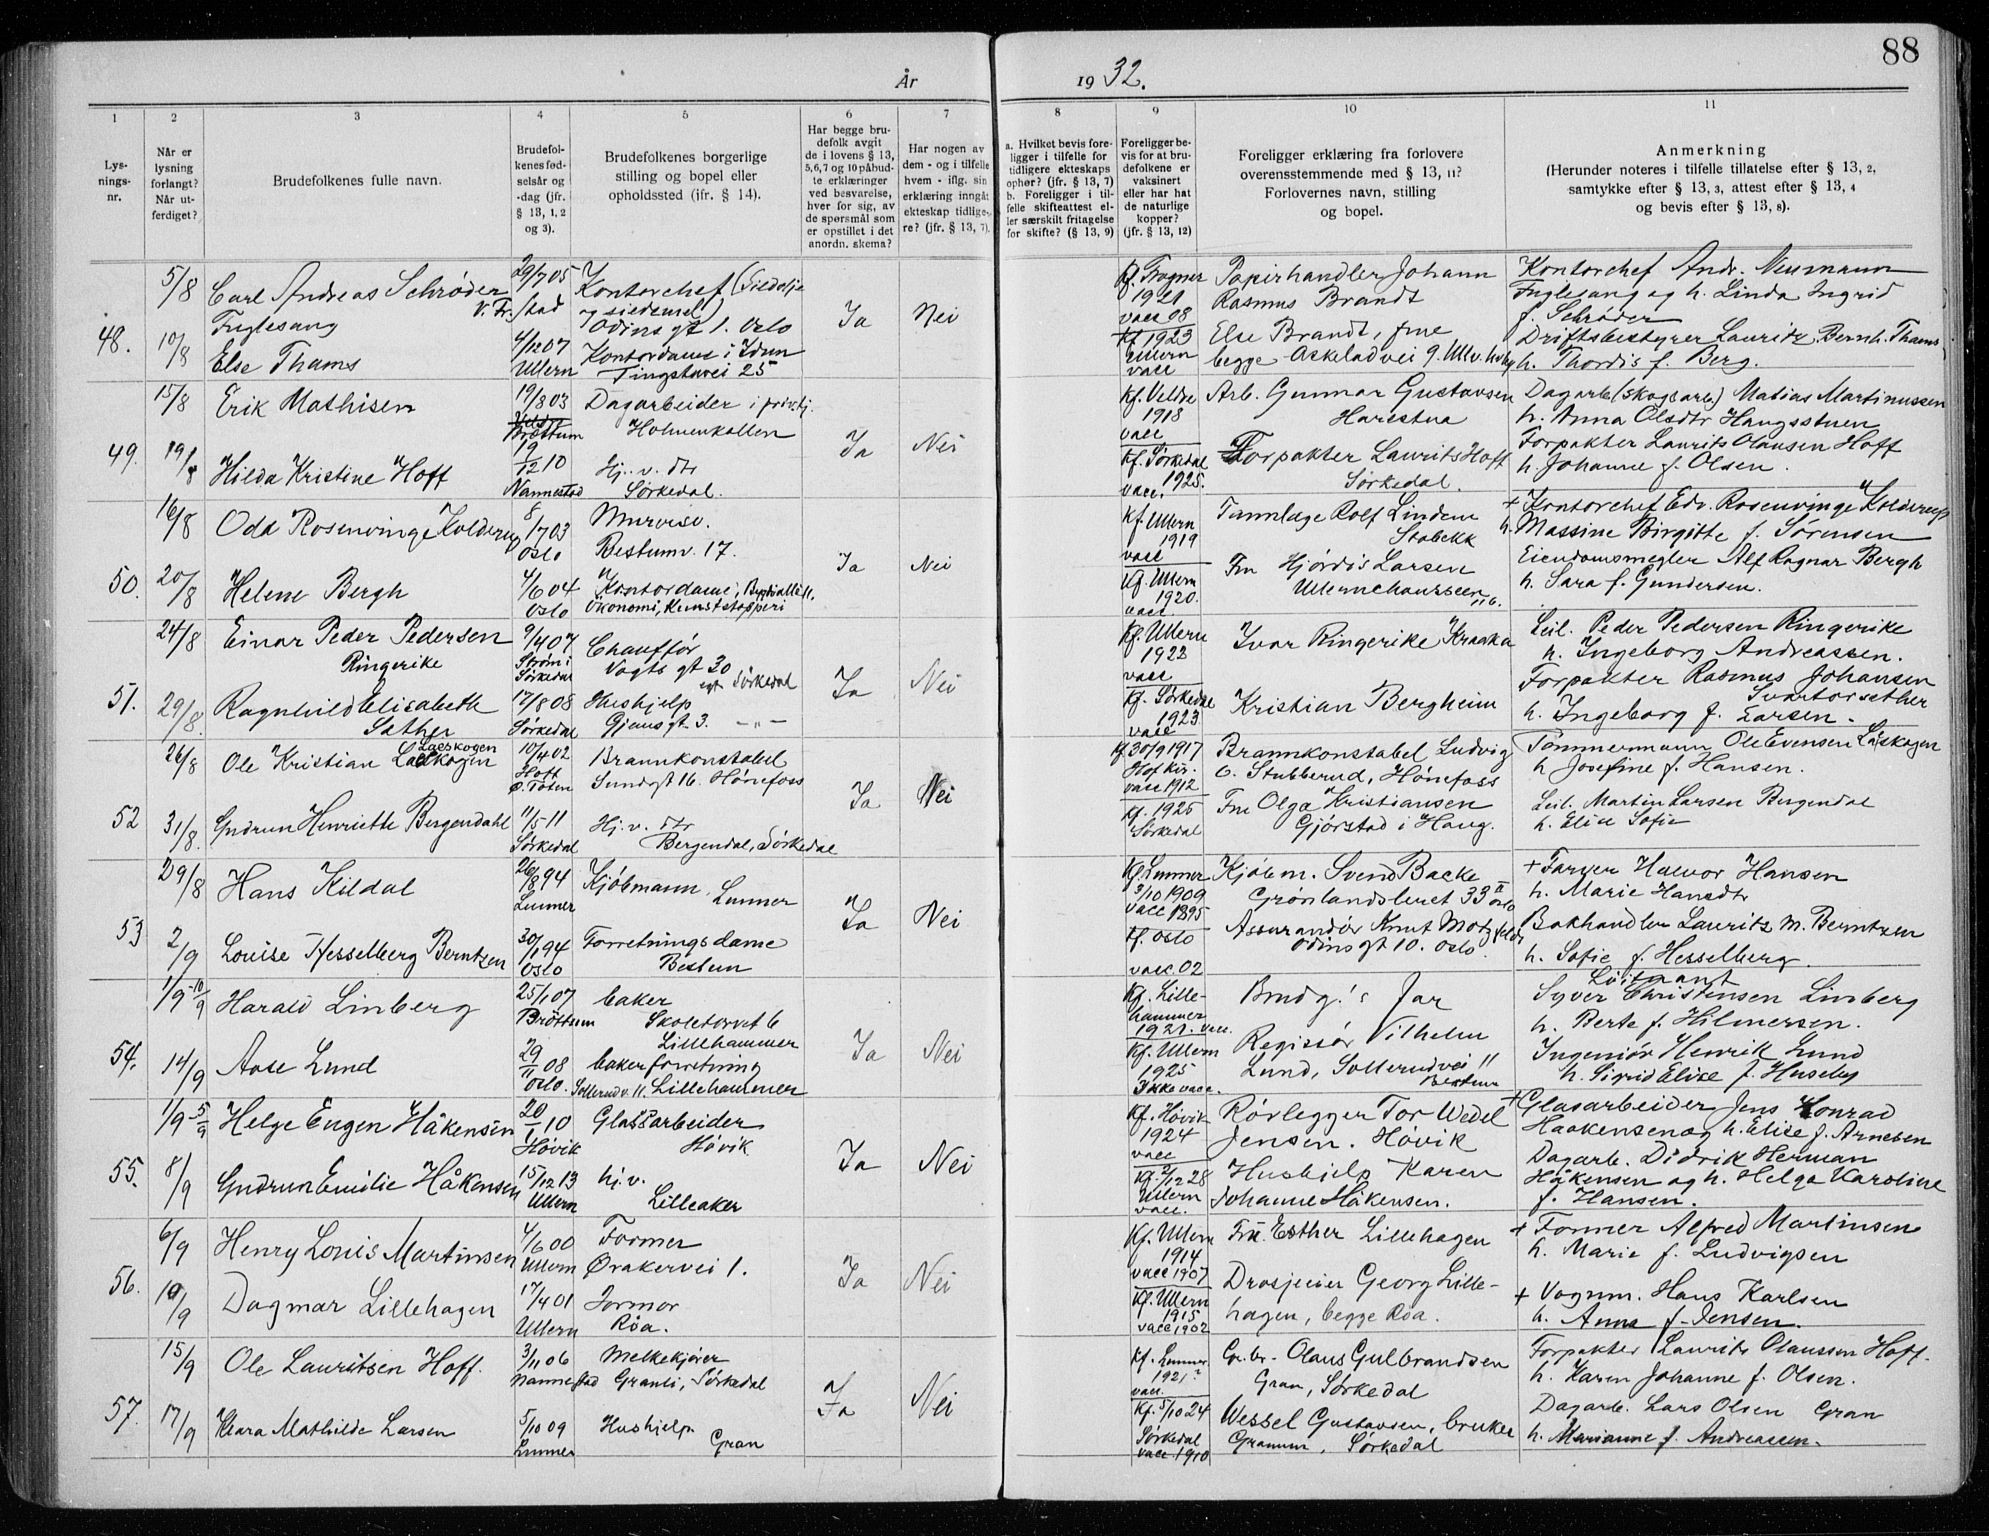 88
År
19 32.
1
2
3
4
5
6
7
8
9
10
11
Lys-
nings-
nr.
Når er
lysning
forlangt?
Når ut-
ferdiget?
Brudefolkenes fulle navn.
Brudefol-
kenes fød-
selsår og
-dag (jfr.
§ 13, 1, 2
og 3).
Brudefolkenes borgerlige
stilling og bopel eller
opholdssted (jfr. § 14).
Har begge bru-
defolk avgit
de i lovens § 13,
5,6,7 og 10 påbud-
te erklæringer
ved besvarelse,
hver for sig, av
de spørsmål som
er opstillet i det
anordn. skema?
Har nogen av
dem - og i tilfelle
hvem - iflg. sin
erklæring inngåt
ekteskap tidlige-
re? (jfr. § 13, 7).
a. Hvilket bevis fore-
ligger i tilfelle for
tidligere ekteskaps
ophør? (jfr. § 13, 7)
b. Foreligger i til-
felle skifteattest el-
ler særskilt fritagelse
for skifte? (§ 13, 9)
Foreligger be-
vis for at bru-
defolkene er
vaksinert
eller har hat
de naturlige
kopper?
(jfr. § 13, 12)
Foreligger erklæring fra forlovere
overensstemmende med § 13, 11?
Forlovernes navn, stilling
og bopel.
Anmerkning
(Herunder noteres i tilfelle tillatelse efter § 13, 2,
samtykke efter § 13, 3, attest efter § 13, 4
og bevis efter § 13, 8).
48.
5/8
10/8
Carl Andreas Schrøder
Fuglesang
Else Thams
29/7 05
V. Fr.stad
4/12 07
Ullern
Kontorchef (Sildolje
og sildemel)
Odins gt 1. Oslo
Kontordame i Idun
Tingstuvei 25
Ja
Nei
Kf. Frogner
1921
vacc 08
Kf 1923
Ullern
vacc
Papirhandler Johann
Rasmus Brandt
Else Brandt, frue
begge Askeladvei 9. Ullv. hvby
Kontorchef Andr. Neumann
Fuglesang og h. Linda Ingrid
f. Schrøder
Driftsbestyrer Lauritz Bernh. Thams
h. Thordis f. Berg.
49.
15/8
19/8
Erik Mathisen
Hilda Kristine Hoff
19/8 03
Brøttum
19/12 10
Nannestad
Dagarbeider i priv. tj.
Holmenkollen
Hj. v. dtr
Sørkedal.
Ja
Nei
Kf. Veldre
1918
vacc
Kf. Sørkedal
1925.
vacc.
Arb. Gunnar Gustavsen
Harestua
Forpakter Laurits Hoff
Sørkedal.
Dagarb (skogsarb) Matias Martinussen
h. Anna Olsdtr Haugsstuen
Forpakter Laurits Olausen Hoff
h. Johanne f. Olsen.
50.
16/8
20/8
Odd Rosenvinge Kolderup
Helene Bergh
8/7 03
Oslo
4/6 04
Oslo
Murvise.
Bestumv. 17.
Kontordame, Bygdø allé 11.
Økonomi, Kunststopperi
Ja
Nei
Kf. Ullern
1919
vacc
Kf. Ullern
1920.
vacc.
Tannlæge Rolf Lindem
Stabekk
Fru Hjørdis Larsen
Ullernchausseen 116.
+ Kontorchef Edv. Rosenvinge Kolderup
h. Massine Birgitte f. Sørensen
Eiendomsmegler Alf Ragnar Bergh
h. Sara f. Gundersen.
51.
24/8
29/8.
Einar Peder Pedersen
Ringerike
Ragnhild Elisabeth
Sæther
9/4 07
Strøm i
Sørkedal
17/8 08
Sørkedal
Chauffør
Vogts gt 30
egt. Sørkedal
Hushjelp
Gjøusgt 3. -"-
Ja
Nei
Kf. Ullern
1922
vacc
Kf. Sørkedal
1923
vacc
Ivar Ringerike Kraaka
Kristian Bergheim
Leil. Peder Pedersen Ringerike
h. Ingeborg Andreassen.
Forpakter Rasmus Johansen
Svartorsether
h. Ingeborg f. Larsen.
52
26/8
31/8.
Ole Kristian Laeskogen
Laeskogen
Gudrun Henriette Bergendahl
10/4 02
Hoff
Ø. Toten
11/5 11
Sørkedal
Brannkonstabel
Sundgt 16. Hønefoss
Hj. v. dtr
Bergendal, Sørkedal
Ja
Nei
Kf 30/9 1917
Hof kir.
vacc 1912
Kf. 1925
Sørkedal
Brannkonstabel Ludvig
O. Stubberud, Hønefoss
Fru Olga Kristiansen
Gjørstad i Haug.
Tømmermann Ole Evensen Læskogen
h Josefine f. Hansen.
Leil. Martin Larsen Bergendal
h. Elise Sofie
53
29/8
2/9
Hans Kildal
Louise Hesselberg Berntzen
26/8 94
Lunner
30/1 94
Oslo
Kjøbmann. Lunner
Forretningsdame
Bestum
Ja
Nei
Kf. Lunner
3/10 1909
vacc 1895
Kf. Oslo
vacc. 02
Kjøbm. Svend Backe
Grønlandsleret 33 II Oslo
Assurandør Knut Motzfeldt
Odinsgt 10. Oslo.
+ Farver Halvor Hansen
h. Marie Hansdtr
Bokhandler Lauritz M. Berntzen
h. Sofie f. Hesselberg.
54.
1/9 - 10/9
14/9
Harald Linberg
Aase Lund
25/1 07
Brøttum
29/11 08
Oslo.
baker
Skoletorvet 6
Lillehammer
bakerforretning
Sollerudv. 11. Lillehammer
Ja
Nei
Kf. Lille-
hammer
1921. vacc.
Kf. Ullern
1925
Ikke vacc.
Brudg.'s far
Regissør Vilhelm
Lund, Sollerudvei 11
Bestum
Løitnant
Syver Christensen Linberg
h. Berte f. Hilmersen.
Ingeniør Henrik Lund
h. Sigrid Elise f. Huseby
55.
1/9 - 5/9
8/9
Helge Eugen Håkensen
Gudrun Emilie Håkensen
20/1 10
Høvik
15/12 13
Ullern
Glassarbeider
Høvik
hj. v.
Lilleaker
Ja
Nei
Kf. Høvik
1924
vacc
Kf. 2/12 28
Ullern
vacc.
Rørlegger Tor Wedel
Jensen. Høvik
Hushjelp Karen
Johanne Håkensen.
+ Glasarbeider Jens Konrad
Haakensen og h. Elise f. Arnesen
Dagarb. Didrik Herman
Håkensen og h. Helga Karoline
f. Hansen.
56.
6/9
10/9
Henry Louis Martinsen
Dagmar Lillehagen
4/6 00
Ullern
17/4 01
Ullern
Former
Ørakervei 1.
Jormor
Røa.
Ja
Nei
Kf. Ullern
1914
vacc 1907
Kf. Ullern
1915
vacc 1902
Frk. Esther Lillehagen
Drosjeeier Georg Lille-
hagen, begge Røa.
+ Former Alfred Martinsen
h. Marie f. Ludvigsen
+ Vognm. Hans Karlsen
h. Anna f. Jensen.
57.
15/9
17/9
Ole Lauritsen Hoff.
Klara Mathilde Larsen
3/11 06
Nannestad
5/10 09
Lunner
Melkekjører
Granli, Sørkedal
Hushjelp
Gran
Ja
Nei
Kf. Lunner
1921?
vacc.
Kf. 5/10 24
Sørkedal
vacc. 1910
Gr.br. Olaus Gulbrandsen
Gran, Sørkedal
Wessel Gustavsen, bruker
Granum, Sørkedal
Forpakter Laurits Olaussen Hoff.
h. Karen Johanne f. Olsen.
Dagarb. Lars Olsen Gran
h. Marianne f. Andreassen.